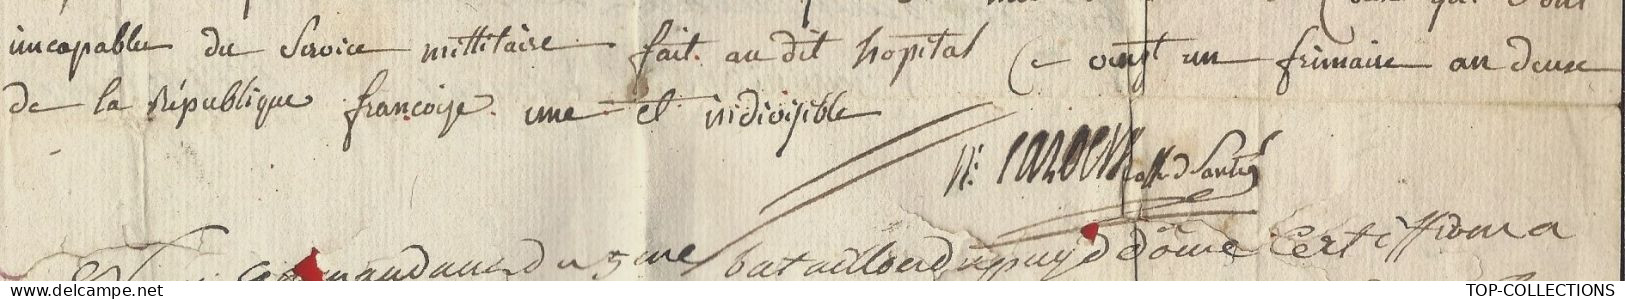 incapable du Service millitaire fait au dit hopital Ce vingt un frimaire an deux
de la République françoise une et indivisible
off. d Santé
Commandant du 5me bataillon du puy d dôme Certiffion a
www.delcampe.net
TOP-COLLECTIONS